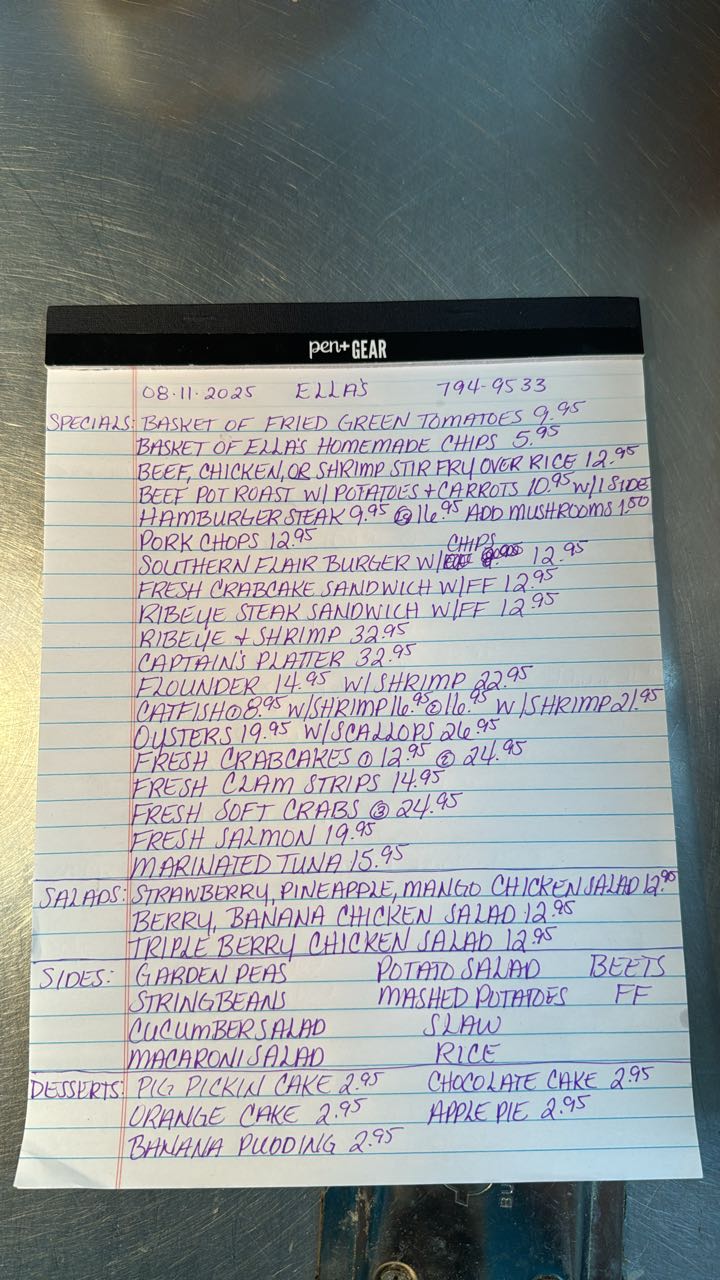 pen+ GEAR
08.11.2025 ELLA'S 794-9533
SPECIALS: BASKET OF FRIED GREEN TOMATOES 9.95
BASKET OF ELLA'S HOMEMADE CHIPS 5.95
BEEF, CHICKEN, OR SHRIMP STIR FRY OVER RICE 12.95
BEEF POT ROAST W/ POTATOES + CARROTS 10.95 W/1 SIDE
HAMBURGER STEAK 9.95 ② 16.95 ADD MUSHROOMS 1.50
PORK CHOPS 12.95
SOUTHERN FLAIR BURGER W/ CHIPS 12.95
FRESH CRABCAKE SANDWICH W/FF 12.95
RIBEYE STEAK SANDWICH W/FF 12.95
RIBEYE + SHRIMP 32.95
CAPTAIN'S PLATTER 32.95
FLOUNDER 14.95 W/ SHRIMP 22.95
CATFISH ① 8.95 W/SHRIMP 16.95 ② 16.95 W/SHRIMP 21.95
OYSTERS 19.95 W/SCALLOPS 26.95
FRESH CRABCAKES ① 12.95 ② 24.95
FRESH CLAM STRIPS 14.95
FRESH SOFT CRABS ③ 24.95
FRESH SALMON 19.95
MARINATED TUNA 15.95
SALADS: STRAWBERRY, PINEAPPLE, MANGO CHICKEN SALAD 12.95
BERRY, BANANA CHICKEN SALAD 12.95
TRIPLE BERRY CHICKEN SALAD 12.95
SIDES: GARDEN PEAS POTATO SALAD BEETS
STRINGBEANS MASHED POTATOES FF
CUCUMBER SALAD SLAW
MACARONI SALAD RICE
DESSERTS: PIG PICKIN CAKE 2.95 CHOCOLATE CAKE 2.95
ORANGE CAKE 2.95 APPLE PIE 2.95
BANANA PUDDING 2.95